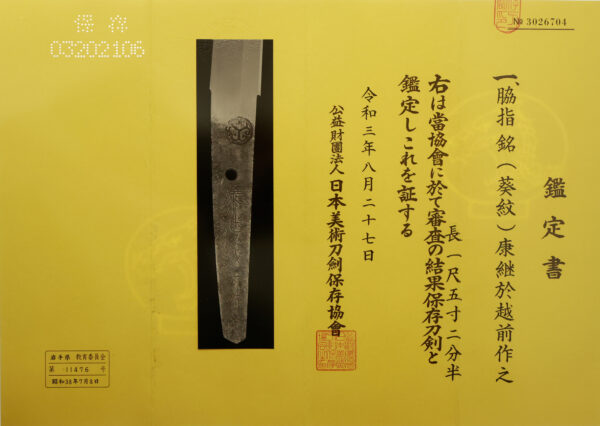 № 3026704
鑑定書
一、脇指 銘（葵紋）康継於越前作之
長一尺五寸二分半
右は當協會に於て審査の結果保存刀剣と
鑑定しこれを証する
令和三年八月二十七日
公益財團法人 日本美術刀劍保存協會
保存
03202106
岩手県 教育委員会
第 11476 号
昭和38年7月8日